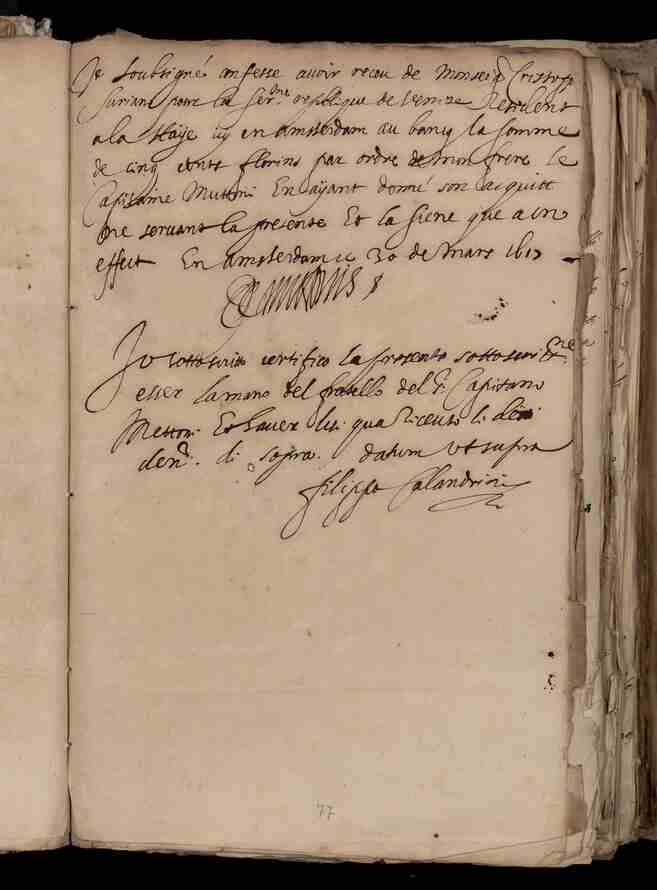 Je soubsigné confesse avoir receu de Monseigr Cristoffo
Suriane pour la Serme republique de Venize Resident
a la Haije icy en amsterdam au bancq la somme
de cinq cents florins par ordre de mon frere le
Capitaine Muttoni En ayant donné son acquitt
ne servant la presente Et la siene que a un
effect En amsterdam ce 30 de mars 1617
Io sottoscritto certifico la presente sottoscrittne
esser la mano del fratello del Sr. Capitano
Mettoni Et haver lui qua ricevto li
denri. di sopra. datum Ut supra
filippo Calandrini
77